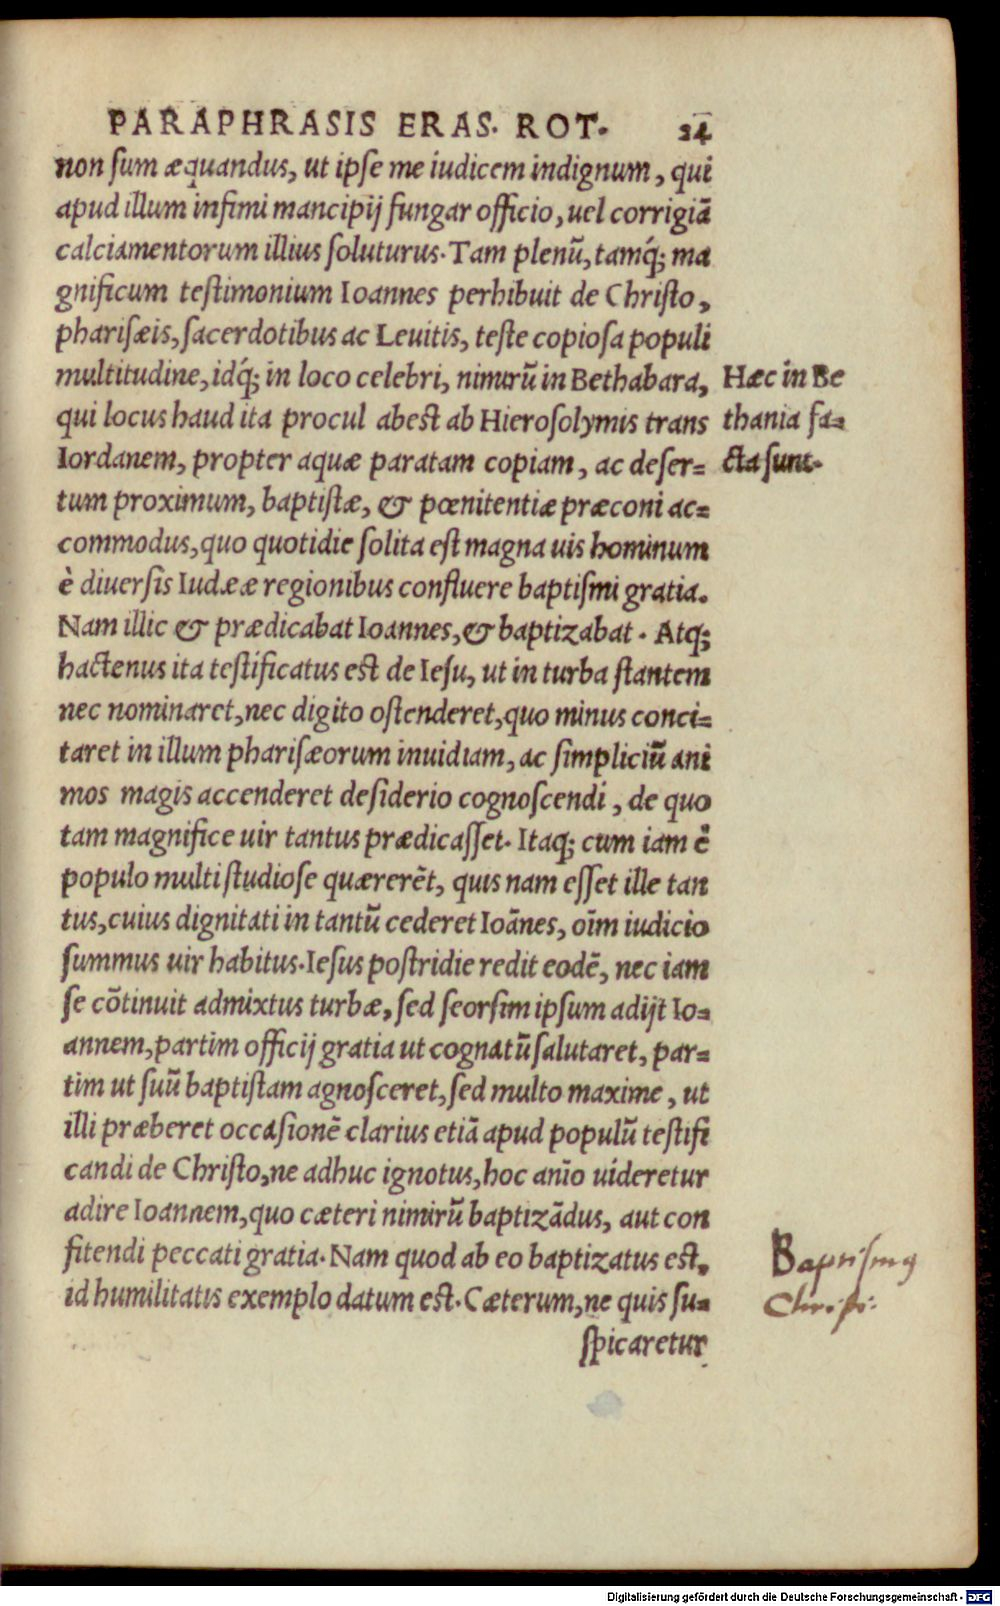 PARAPHRASIS ERAS. ROT. 24
non ſum æquandus, ut ipſe me iudicem indignum, qui
apud illum infimi mancipij fungar officio, uel corrigiā
calciamentorum illius ſoluturus. Tam plenū, tamq́; ma
gnificum teſtimonium Ioannes perhibuit de Chriſto,
phariſæis, ſacerdotibus ac Leuitis, teſte copioſa populi
multitudine, idq́; in loco celebri, nimirū in Bethabara,
qui locus haud ita procul abeſt ab Hieroſolymis trans
Iordanem, propter aquæ paratam copiam, ac deſer=
tum proximum, baptiſtæ, & pœnitentiæ præconi ac=
commodus, quo quotidie ſolita eſt magna uis hominum
è diuerſis Iudææ regionibus confluere baptiſmi gratia.
Nam illic & prædicabat Ioannes, & baptizabat. Atq;
hactenus ita teſtificatus eſt de Ieſu, ut in turba ſtantem
nec nominaret, nec digito oſtenderet, quo minus conci=
taret in illum phariſæorum inuidiam, ac ſimpliciū ani
mos magis accenderet deſiderio cognoſcendi, de quo
tam magnifice uir tantus prædicaſſet. Itaq; cum iam è
populo multi ſtudioſe quærerēt, quis nam eſſet ille tan
tus, cuius dignitati in tantū cederet Ioānes, oīm iudicio
ſummus uir habitus. Ieſus poſtridie redit eodē, nec iam
ſe cōtinuit admixtus turbæ, ſed ſeorſim ipſum adijt Io=
annem, partim officij gratia ut cognatū ſalutaret, par=
tim ut ſuū baptiſtam agnoſceret, ſed multo maxime, ut
illi præberet occaſionē clarius etiā apud populū teſtifi
candi de Chriſto, ne adhuc ignotus, hoc anīo uideretur
adire Ioannem, quo cæteri nimirū baptizādus, aut con
fitendi peccati gratia. Nam quod ab eo baptizatus eſt,
id humilitatis exemplo datum eſt. Cæterum, ne quis ſu=
ſpicaretur
Hæc in Be
thania fa=
cta ſunt.
Baptiſmꝰ
Chriſti:
Digitalisierung gefördert durch die Deutsche Forschungsgemeinschaft - DFG